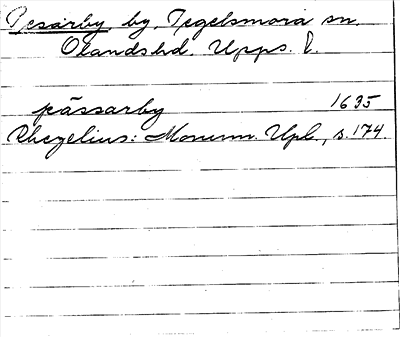 Pesarby, by, Tegelsmora sn
Olandshd. Upps. l.
pässarby 1635
Rhezelius: Monum. Upl., s. 174.